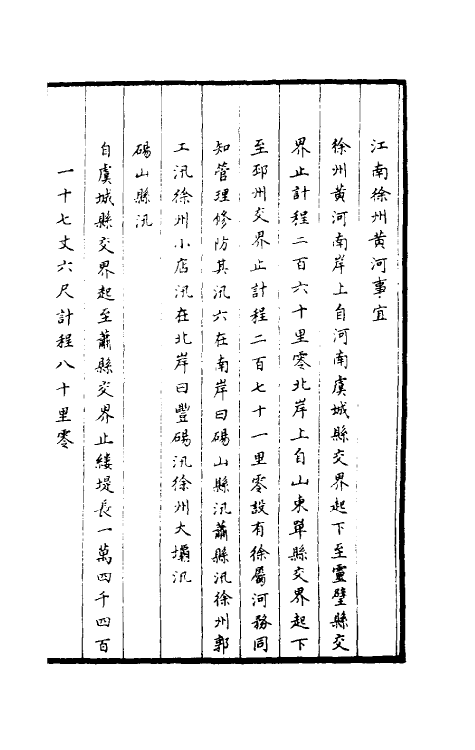 江南徐州黃河事宜
徐州黃河南岸上自河南虞城縣交界起下至靈璧縣交
界止計程二百六十里零北岸上自山東單縣交界起下
至邳州交界止計程二百七十一里零設有徐屬河務同
知管理修防其汛六在南岸曰碭山縣汛蕭縣汛徐州郭
工汛徐州小店汛在北岸曰豐碭汛徐州大壩汛
碭山縣汛
自虞城縣交界起至蕭縣交界止縷堤長一萬四千四百
一十七丈六尺計程八十里零